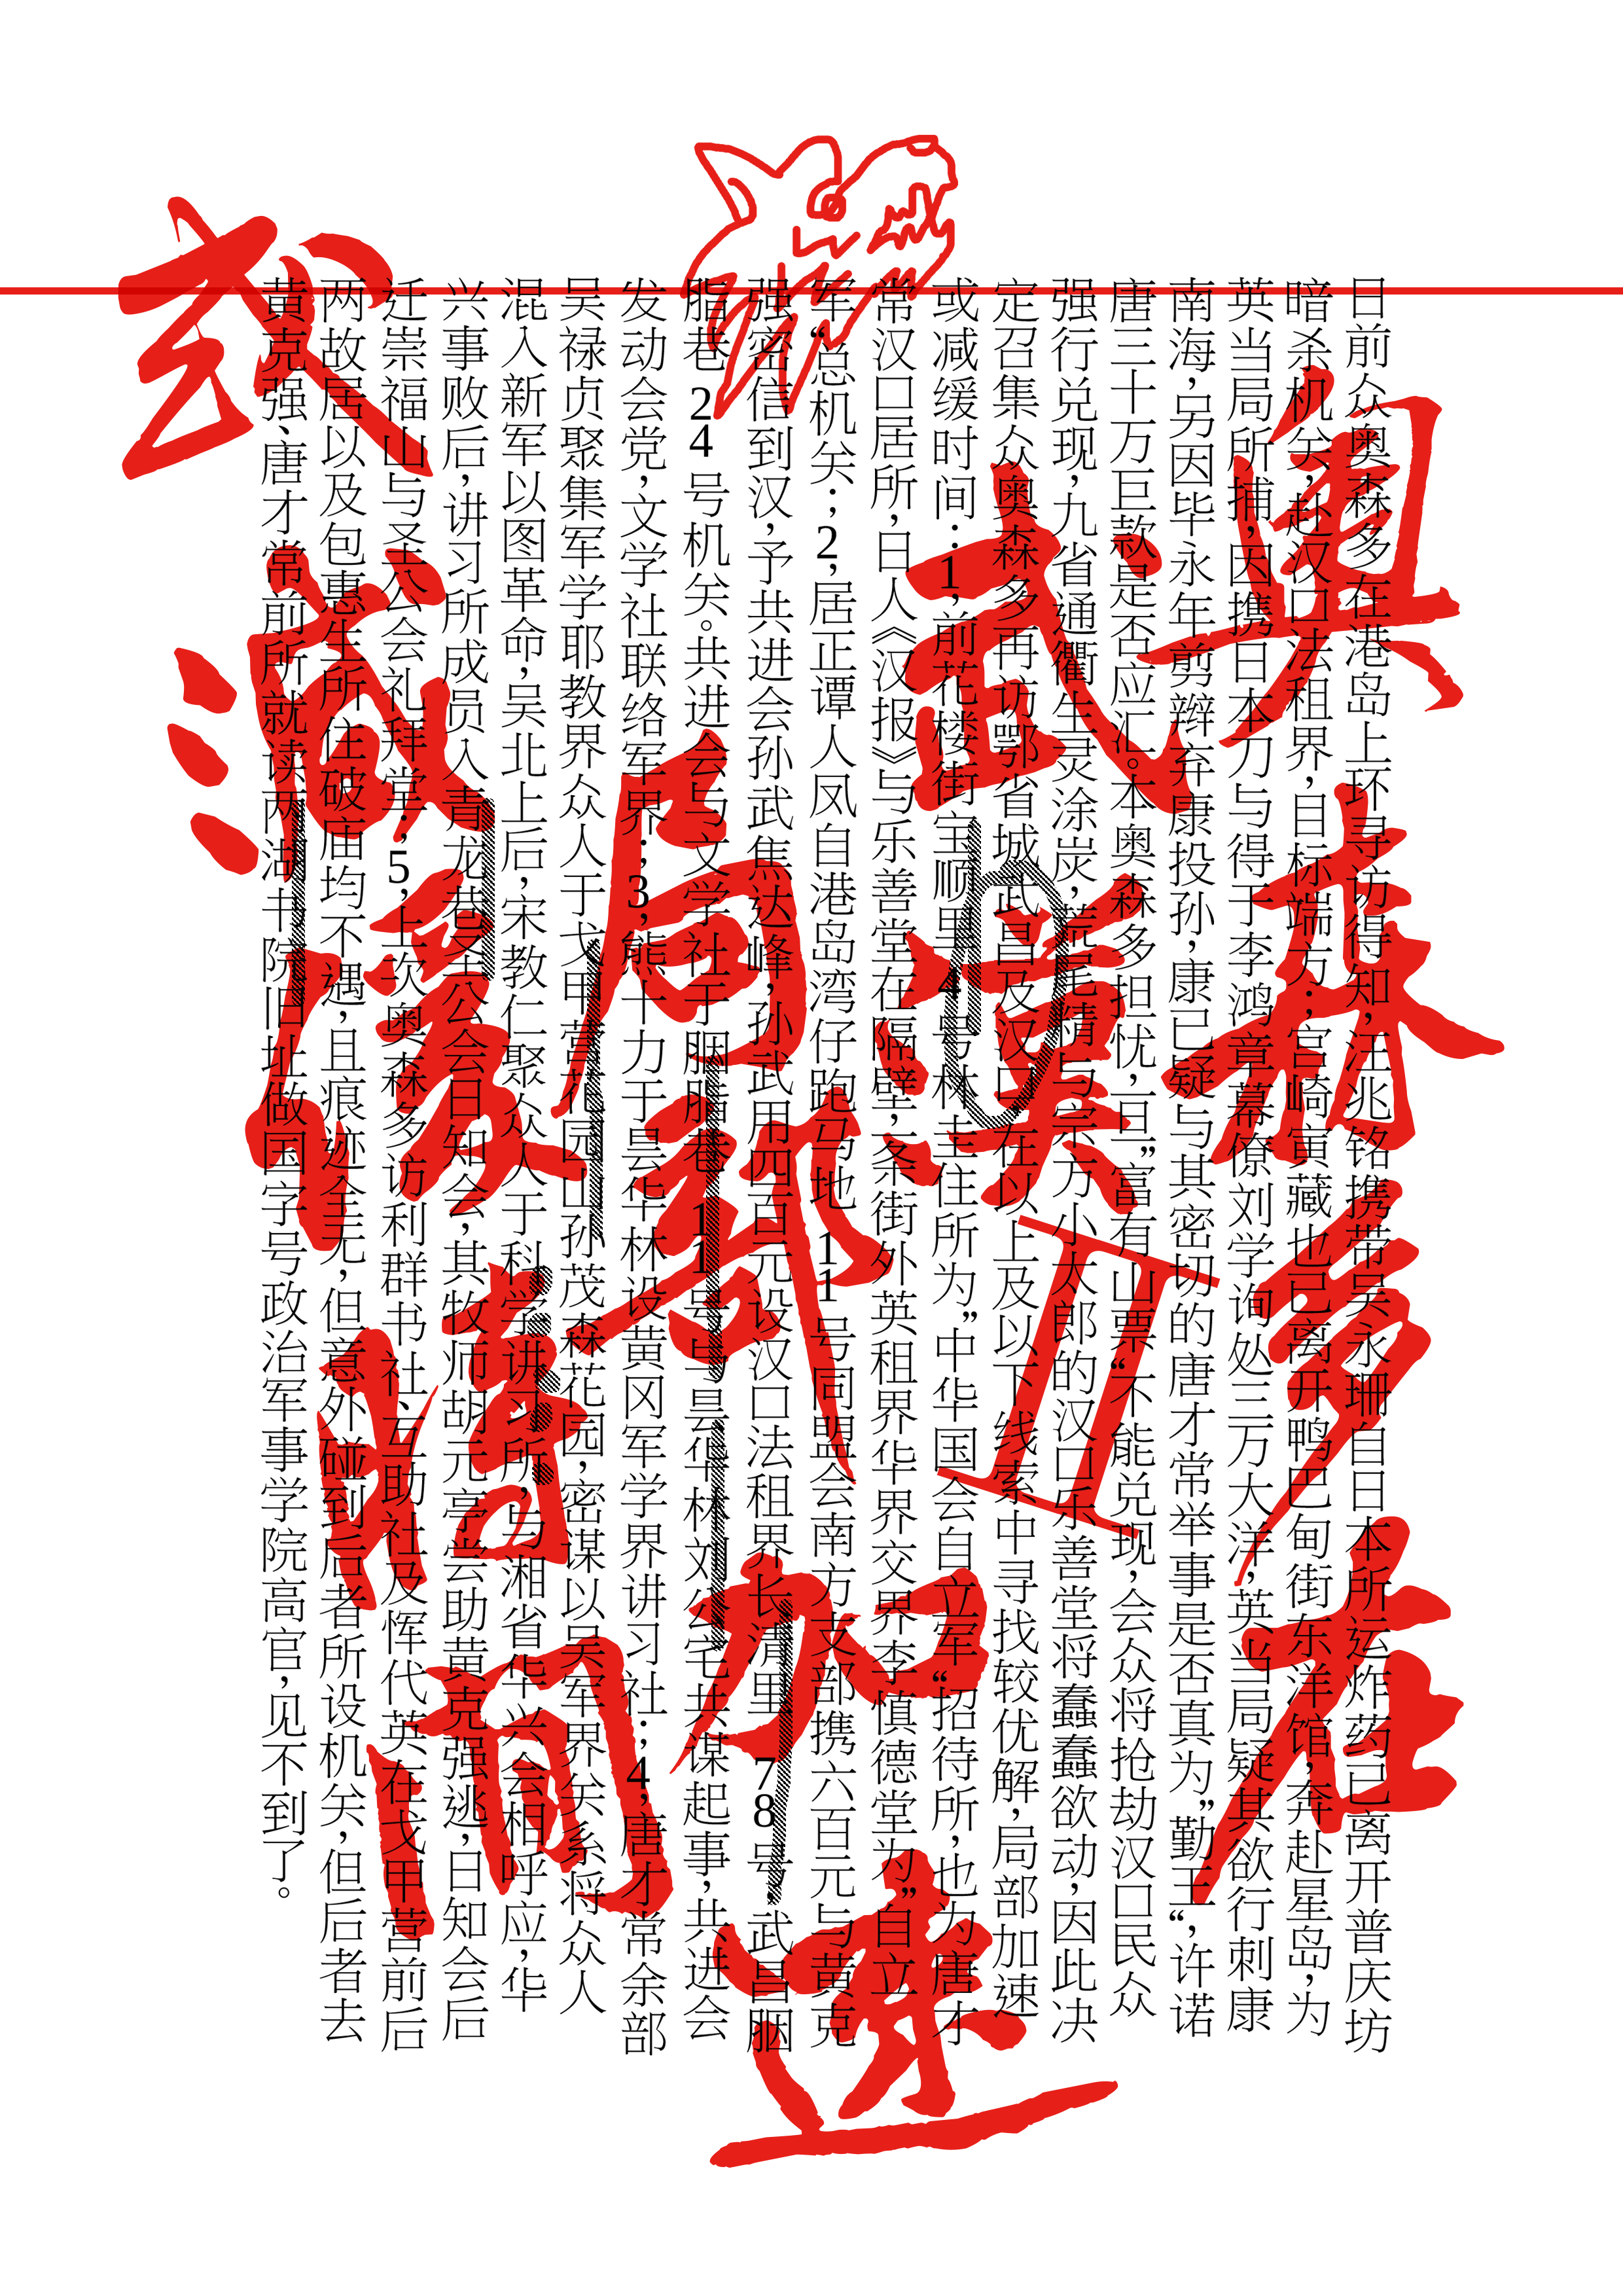 奥森多在
武漢II
局部加速
或減緩時間
日前众奥森多在港岛上环寻访得知,汪兆铭携带吴永珊自日本所运炸药已离开普庆坊
暗杀机关,赴汉口法租界,目标端方;宫崎寅藏也已离开鸭巴甸街东洋馆,奔赴星岛,为
英当局所捕,因携日本刀与得于李鸿章幕僚刘学询处三万大洋,英当局疑其欲行刺康
南海,另因毕永年剪辫弃康投孙,康已疑与其密切的唐才常举事是否真为”勤王“,许诺
唐三十万巨款是否应汇。本奥森多担忧,一旦”富有山票“不能兑现,会众将抢劫汉口民众
强行兑现,九省通衢生灵涂炭,荒尾精与宗方小太郎的汉口乐善堂将蠢蠢欲动,因此决
定召集众奥森多再访鄂省城武昌及汉口,在以上及以下线索中寻找较优解,局部加速
或减缓时间:1,前花楼街宝顺里4号林圭住所为”中华国会自立军“招待所,也为唐才
常汉口居所,日人《汉报》与乐善堂在隔壁,一条街外英租界华界交界李慎德堂为”自立
军“总机关;2,居正谭人凤自港岛湾仔跑马地11号同盟会南方支部携六百元与黄克
强密信到汉,予共进会孙武焦达峰,孙武用四百元设汉口法租界长清里78号,武昌胭
脂巷24号机关。共进会与文学社于胭脂巷11号与昙华林刘公宅共谋起事,共进会
发动会党,文学社联络军界;3,熊十力于昙华林设黄冈军学界讲习社;4,唐才常余部
吴禄贞聚集军学耶教界众人于戈甲营花园山孙茂森花园,密谋以吴军界关系将众人
混入新军以图革命,吴北上后,宋教仁聚众人于科学讲习所,与湘省华兴会相呼应,华
兴事败后,讲习所成员入青龙巷圣公会日知会,其牧师胡兰亭尝助黄克强逃,日知会后
迁崇福山与圣公会礼拜堂;5,上次奥森多访利群书社、互助社及恽代英在戈甲营前后
两故居以及包惠生所住破庙均不遇,且痕迹全无,但意外碰到后者所设机关,但后者去
黄克强、唐才常前所就读两湖书院旧址做国字号政治军事学院高官,见不到了。